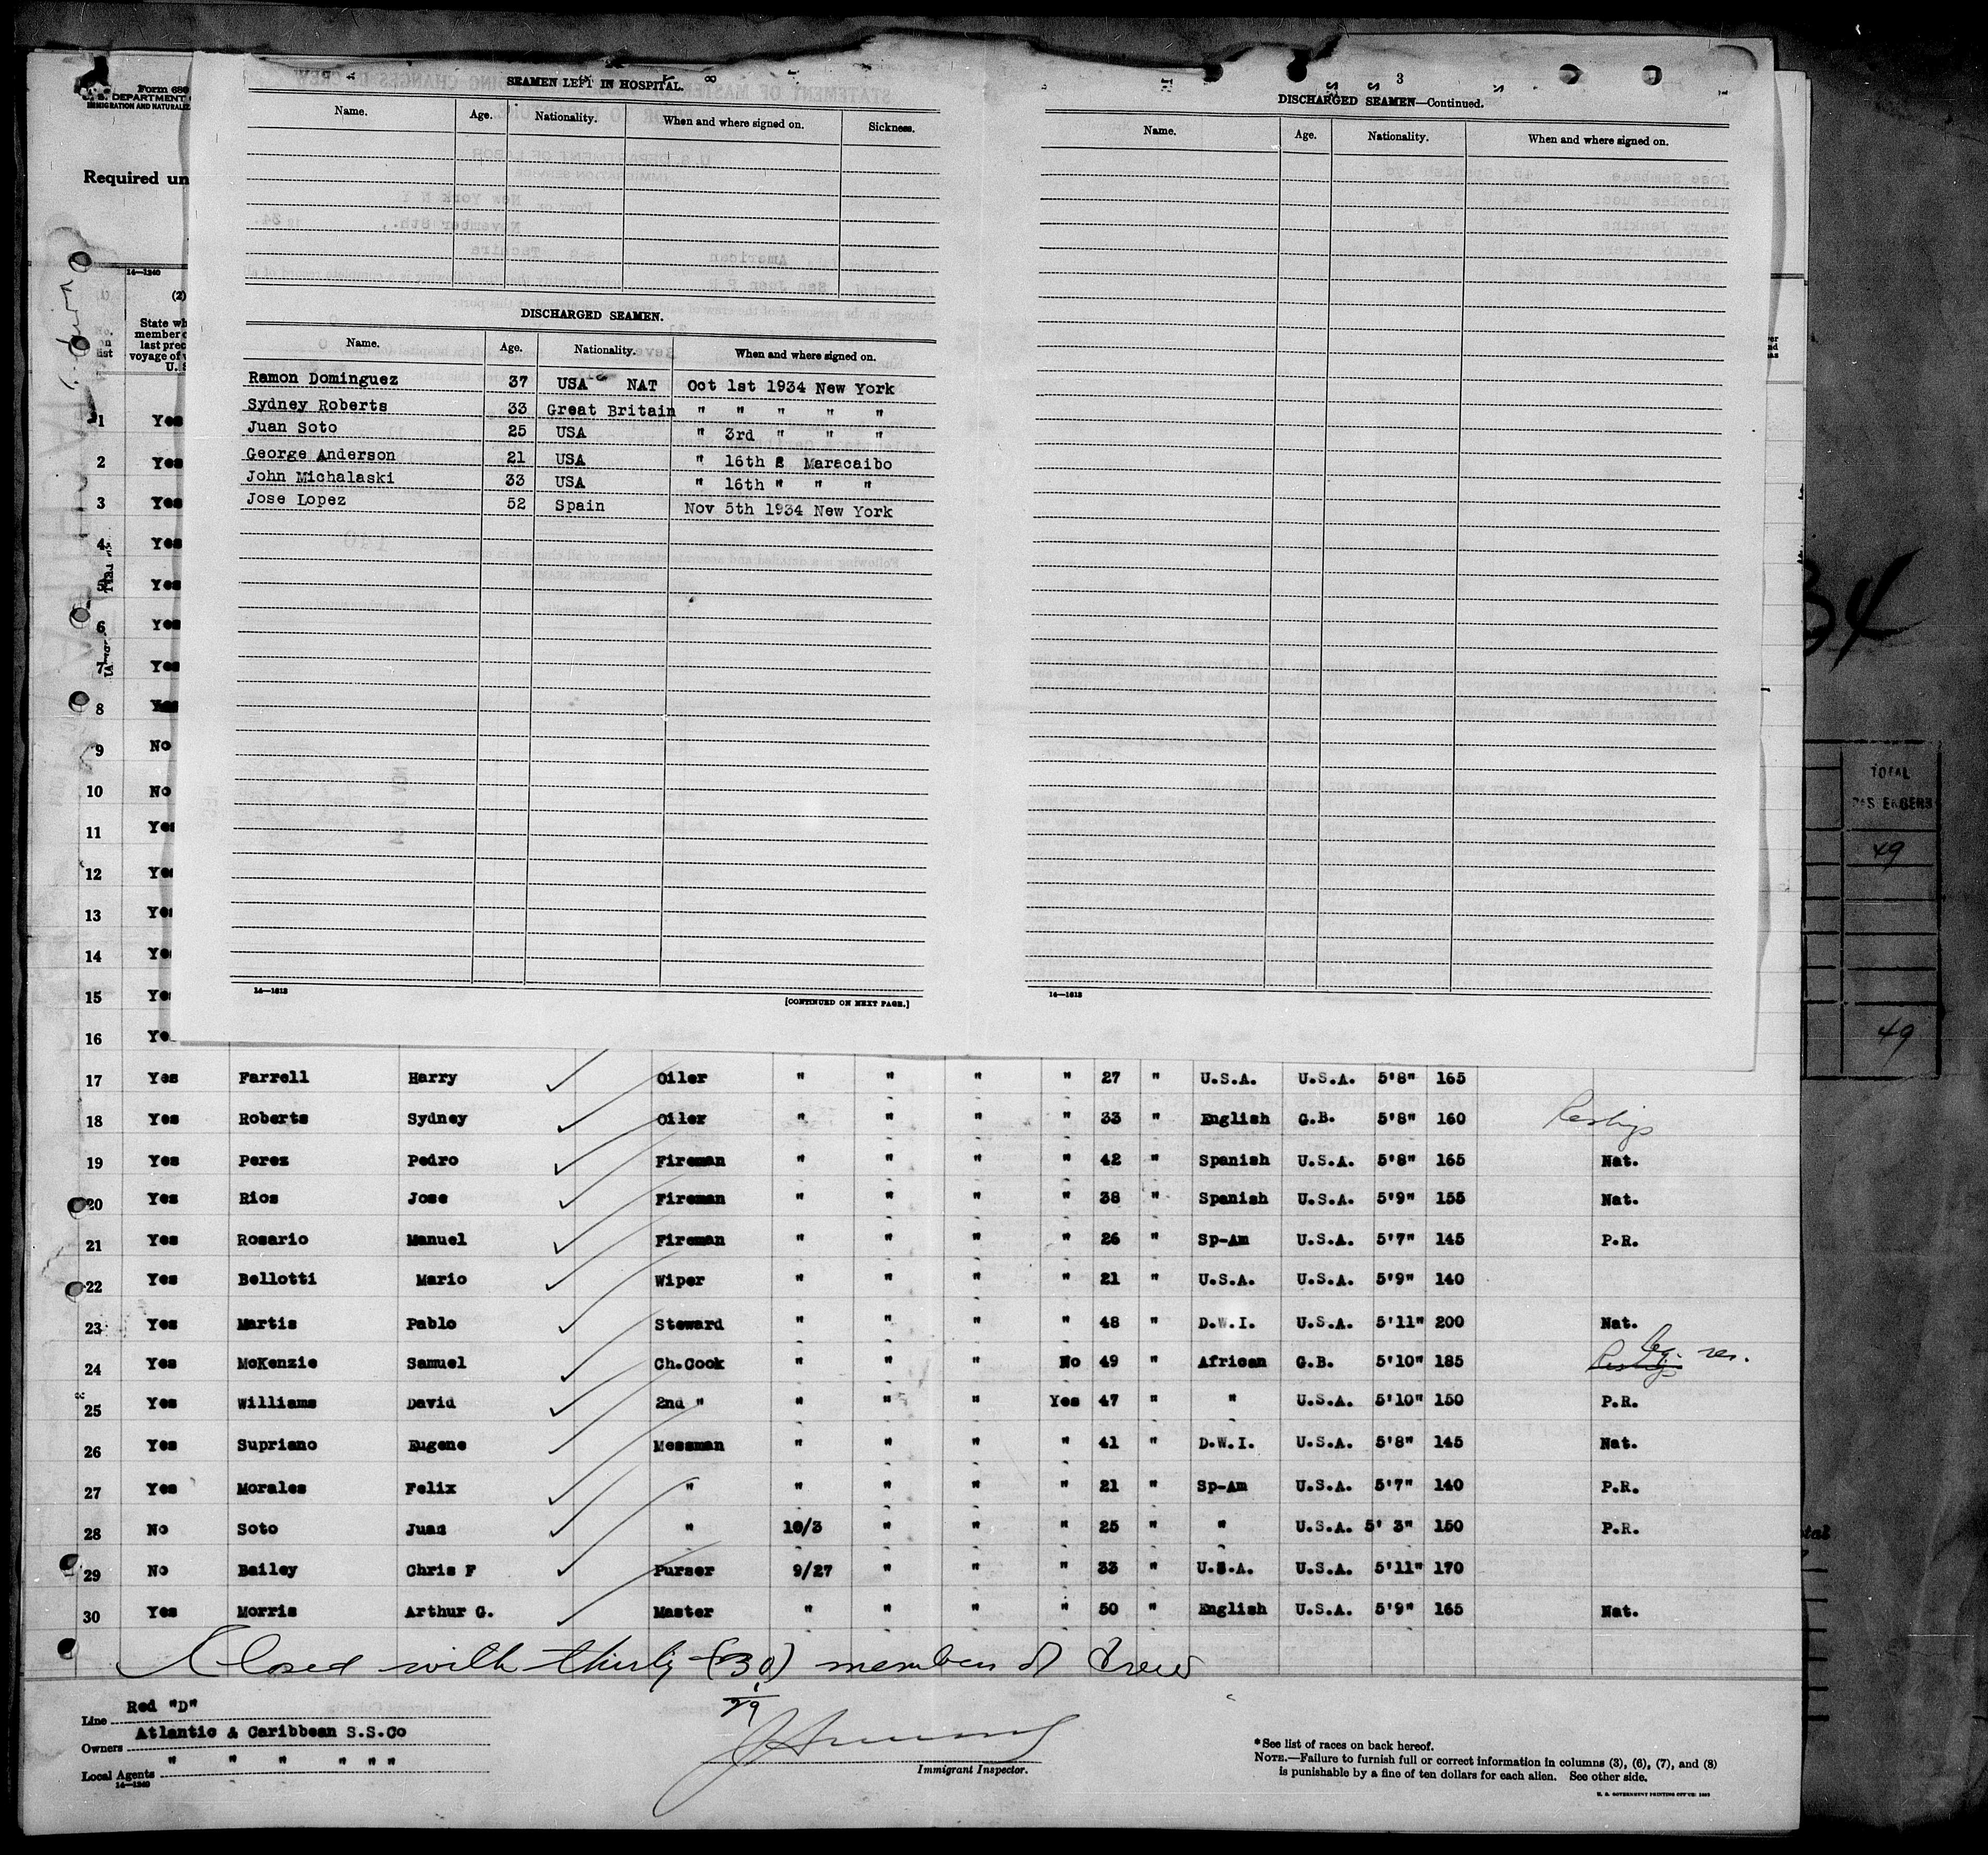 Form 680
U. S. DEPARTMENT
IMMIGRATION AND NATURALIZ
Required un
14—1240
(2)
State wh
member o
last prec
voyage of v
U. S
SEAMEN LEFT IN HOSPITAL.
Name. Age. Nationality. When and where signed on. Sickness.
DISCHARGED SEAMEN.
Name. Age. Nationality. When and where signed on.
Ramon Dominguez 37 USA NAT Oct 1st 1934 New York
Sydney Roberts 33 Great Britain " " " " "
Juan Soto 25 USA " 3rd " " "
George Anderson 21 USA " 16th Maracaibo
John Michalaski 33 USA " 16th " " "
Jose Lopez 52 Spain Nov 5th 1934 New York
14—1613 [CONTINUED ON NEXT PAGE.]
3
DISCHARGED SEAMEN—Continued.
Name. Age. Nationality. When and where signed on.
14—1613
1 Yes
2 Yes
3 Yes
4 Yes
5 Yes
6 Yes
7 Yes
8 Yes
9 No
10 No
11 Yes
12 Yes
13 Yes
14 Yes
15 Yes
16 Yes
17 Yes Farrell Harry Oiler " " " " 27 " U.S.A. U.S.A. 5'8" 165
18 Yes Roberts Sydney Oiler " " " " 33 " English G.B. 5'8" 160
19 Yes Perez Pedro Fireman " " " " 42 " Spanish U.S.A. 5'8" 165 Nat.
20 Yes Rios Jose Fireman " " " " 38 " Spanish U.S.A. 5'9" 155 Nat.
21 Yes Rosario Manuel Fireman " " " " 26 " Sp-Am U.S.A. 5'7" 145 P.R.
22 Yes Bellotti Mario Wiper " " " " 21 " U.S.A. U.S.A. 5'9" 140
23 Yes Martis Pablo Steward " " " " 48 " D.W.I. U.S.A. 5'11" 200 Nat.
24 Yes McKenzie Samuel Ch.Cook " " " No 49 " African G.B. 5'10" 185 res.
25 Yes Williams David 2nd " " " " Yes 47 " " U.S.A. 5'10" 150 P.R.
26 Yes Supriano Eugene Messman " " " " 41 " D.W.I. U.S.A. 5'8" 145 Nat.
27 Yes Morales Felix " " " " " 21 " Sp-Am U.S.A. 5'7" 140 P.R.
28 No Soto Juan " 10/3 " " " 25 " " U.S.A. 5' 3" 150 P.R.
29 No Bailey Chris F Purser 9/27 " " " 33 " U.S.A. U.S.A. 5'11" 170
30 Yes Morris Arthur G. Master " " " " 50 " English U.S.A. 5'9" 165 Nat.
Closed with thirty (30) members of Crew
1/29
Line Red "D"
Owners Atlantic & Caribbean S.S.Co
Local Agents " " " " " "
14—1240
Immigrant Inspector.
*See list of races on back hereof.
NOTE.—Failure to furnish full or correct information in columns (3), (6), (7), and (8)
is punishable by a fine of ten dollars for each alien. See other side.
U. S. GOVERNMENT PRINTING OFFICE
34
TOTAL
PASSENGERS
49
49